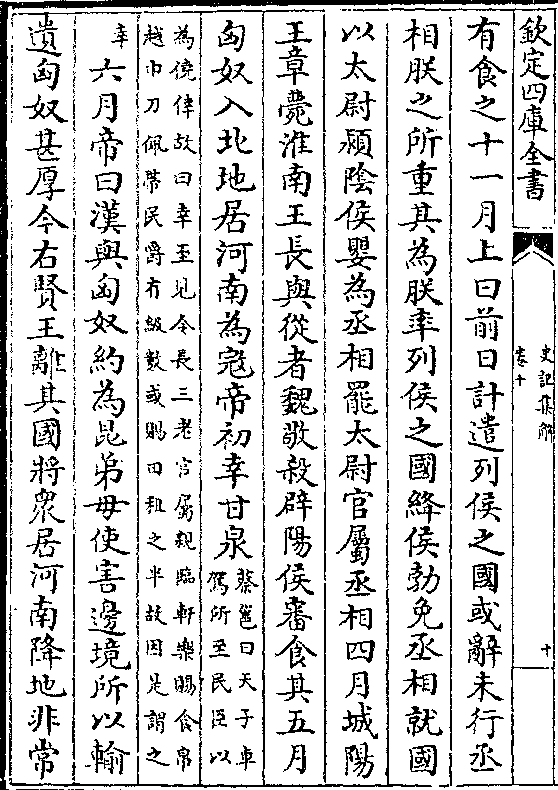 欽定四庫全書
史記集解
卷十
十
有食之十一月上曰前日計遣列侯之國或辭未行丞
相朕之所重其為朕率列侯之國絳侯勃免丞相就國
以太尉潁陰侯嬰為丞相罷太尉官屬丞相四月城陽
王章薨淮南王長與從者魏敬殺辟陽侯審食其五月
匈奴入北地居河南為寇帝初幸甘泉
蔡邕曰天子車
駕所至民臣以
為僥倖故曰幸至見令長三老官屬親臨軒樂賜食帛
越巾刀佩帶民爵有級數或賜田租之半故因是謂之
幸
六月帝曰漢與匈奴約為昆弟毋使害邊境所以輸
遺匈奴甚厚今右賢王離其國將衆居河南降地非常